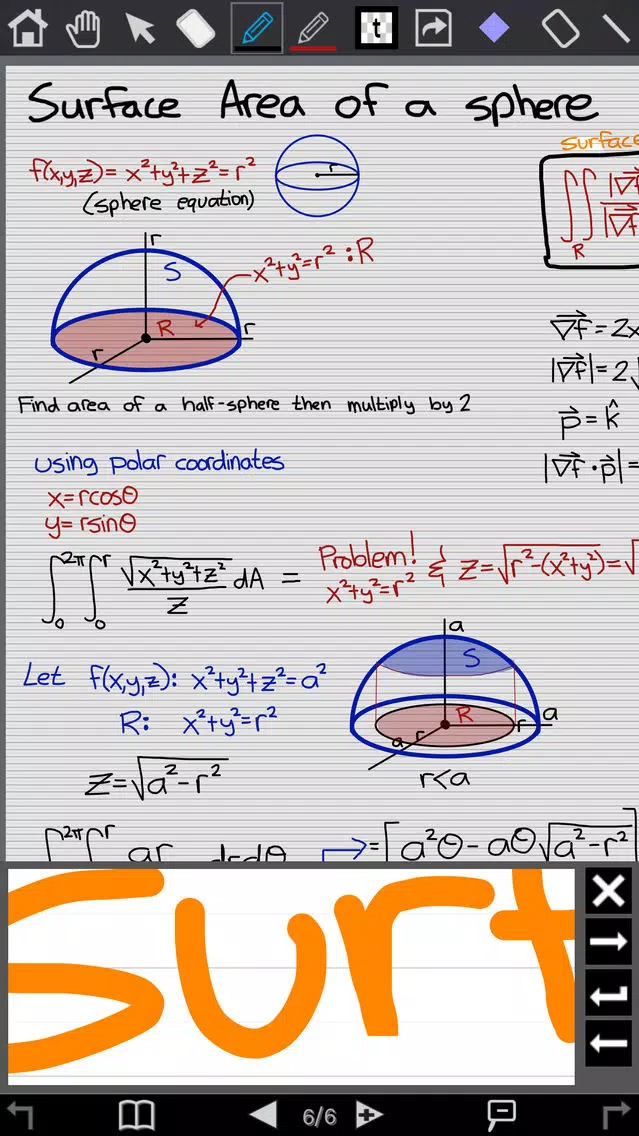 t
Surface Area of a sphere
f(x,y,z)= x²+y²+z²=r²
(sphere equation)
r
surface
∬ |∇f|
|∇f
R
r
S
x²+y²=r² : R
R
r
r
∇f = 2x
|∇f|= 2√
p = k̂
|∇f · p| =
Find area of a half-sphere then multiply by 2
Using polar coordinates
x=rcosθ
y=rsinθ
∫₀^2π ∫₀^r √x²+y²+z² / z dA =
Problem!
x²+y²=r² & z=√r²-(x²+y²)=√
Let f(x,y,z): x²+y²+z²=a²
R: x²+y²=r²
z=√a²-r²
a
S
R
r
a
a
r
r<a
∫^2π ∫^r ar drdθ
=[a²θ-aθ√a²-r²]
Surf
6/6